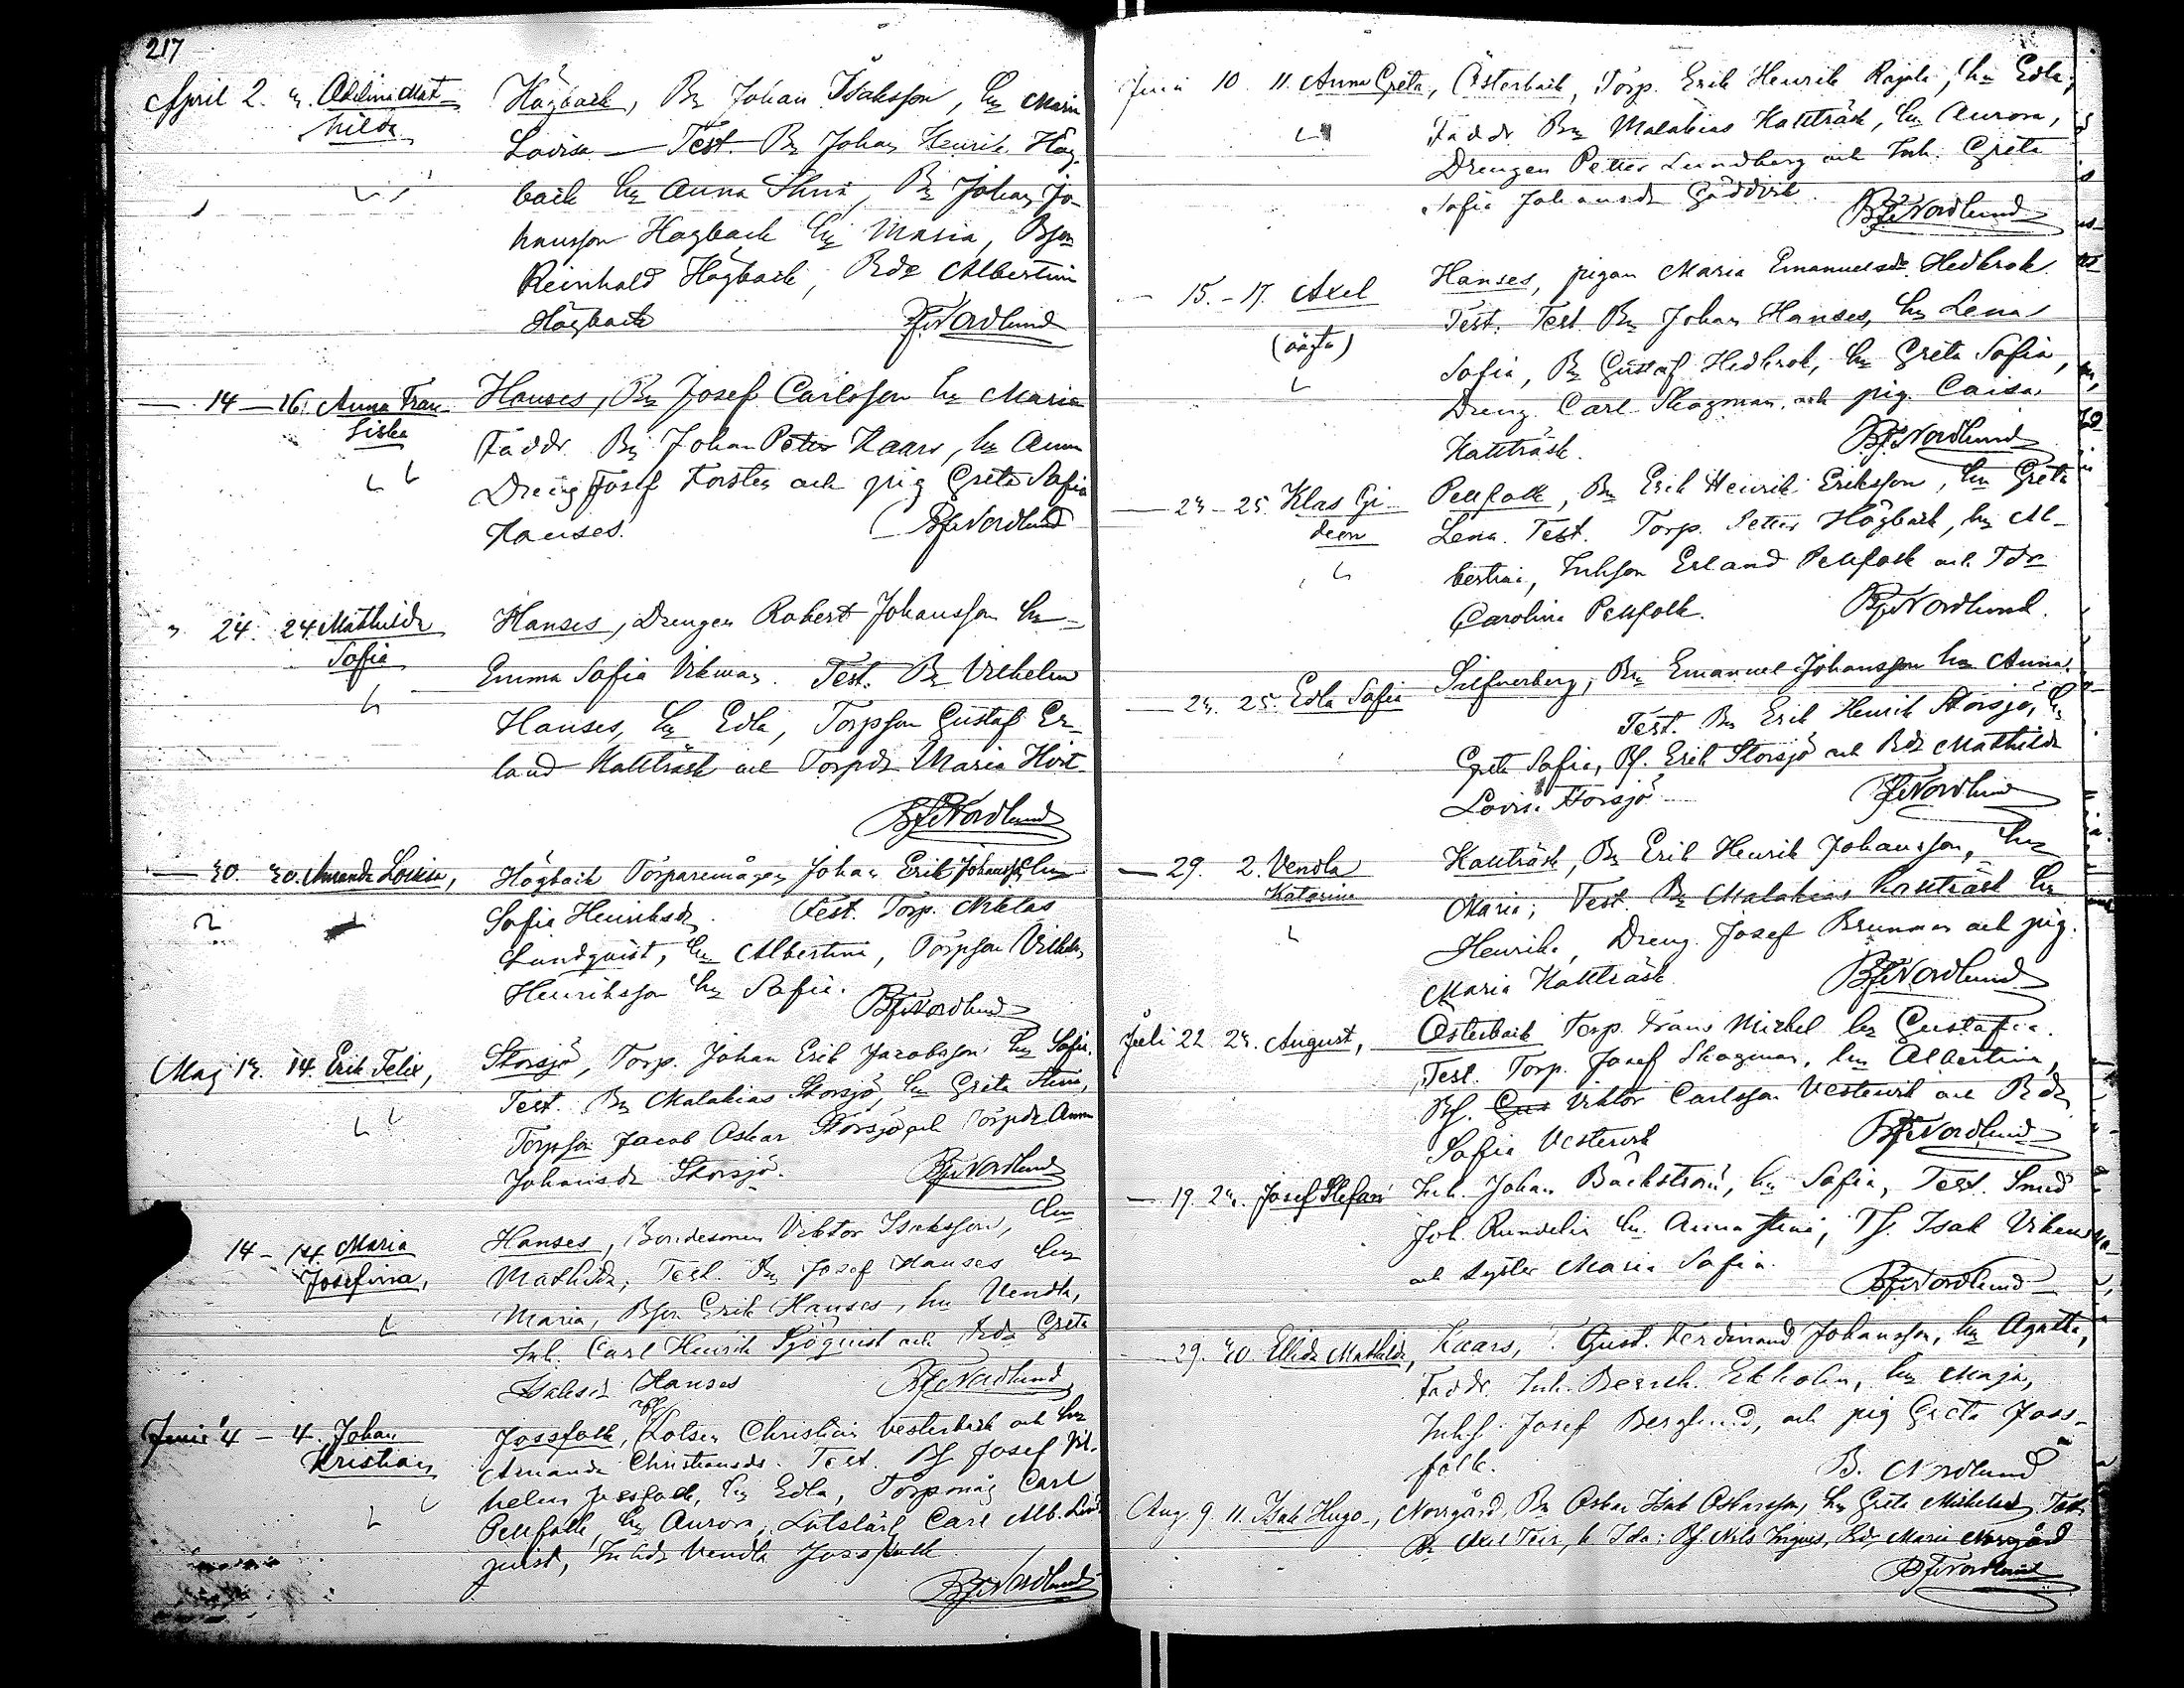 217
April 2. 3. Adelina Mat- Högback, Bn Johan Isaksson, hu Maria
hilda Lovisa — Test. Bn Johan Henrik Hög-
back hu Anna Stina, Bn Johan Jo-
hansson Högback hu Maria, Bson
Reinhold Högback, Bdr Albertina
Högback BjNordlund
— 14 — 16. Anna Fran- Hanses, Bn Josef Carlsson hu Maria
siska Faddr. Bn Johan Peter Kaars, hu Anna
Dreng Josef Forsten och pig Greta Sofia
Hanses. BjNordlund
" 24. 24. Mathilda Hanses, Drengen Robert Johansson hu
Sofia Emma Sofia Vikman. Test. Bn Vilhelm
Hanses, hu Edla, Torpson Gustaf Er-
land Kattträsk och Torpdr Maria Hört-
BjNordlund
— 30. 30. Amanda Lovisa, Högback Torparemågen Johan Erik Johansson hu
Sofia Henriksdr. Test. Torp. Niklas
Lundquist, hu Albertina, Torpson Vilhelm
Henriksson hu Sofia. BjNordlund
Maj 13. 14. Erik Felix, Storsjö, Torp. Johan Erik Jacobsson hu Sofia.
Test. Bn Malakias Storsjö, hu Greta Stina,
Torpson Jacob Oskar Storsjö och Torpdr Anna
Johansdr Storsjö. BjNordlund
14 — 14. Maria Hanses, Bondesonen Viktor Isaksson, hu
Josefina, Mathilda, Test. Bn Josef Hanses hu
Maria, Bson Erik Hanses, hu Vendla,
Inh. Carl Henrik Sjöquist och Bdr Greta
Isaksdr Hanses BjNordlund
Juni 4 — 4. Johan Jossfolk, Lotsen Christian Vesterback och hu
Kristian Amanda Christiansdr. Test. Bf Josef Vil-
helm Jossfolk, hu Edla, Torpmåg Carl
Pellfolk, hu Aurora, Lotslärl. Carl Alb. Lind-
quist, Inhdr Vendla Jossfolk
BjNordlund
Juni 10. 11. Anna Greta, Österback, Torp. Erik Henrik Rajala, hu Edla,
Faddr. Bn Malakias Kattträsk, hu Aurora,
Drengen Petter Lundberg och Inh. Greta
Sofia Johansdr Gäddvik. BjNordlund
— 15. — 17. Axel Hanses, pigan Maria Emanuelsdr Hedkrok
(oägta) Test. Test Bn Johan Hanses, hu Lena
Sofia, Bn Gustaf Hedkrok, hu Greta Sofia,
Dreng. Carl Skogman, och pig. Caisa
Kattträsk. BjNordlund
— 23 — 25. Klas Gi- Pellfolk, Bn Erik Henrik Eriksson, hu Greta
deon Lena. Test. Torp. Petter Högback, hu Al-
bertina, Inhson Erland Pellfolk och Tdr
Carolina Pellfolk. BjNordlund.
— 23. 25. Edla Sofia Silfverberg, Bn Emanuel Johansson hu Anna.
Test. Bn Erik Henrik Storsjö, hu
Greta Sofia, Bf. Erik Storsjö och Bdr Mathilda
Lovisa Storsjö BjNordlund
— 29. 2. Vendla Kattträsk, Bn Erik Henrik Johansson, hu
Katarina Maria; Test. Bn Malakias Kattträsk hu
Henrika, Dreng. Josef Brunman och pig.
Maria Kattträsk BjNordlund
Juli 22 23. August, Österback Torp. Frans Mickel hu Gustafva.
Test. Torp. Josef Skogman, hu Albertina,
Bf. Viktor Carlsson Vestervik och Bdr
Sofia Vestervik BjNordlund
— 19. 23. Josef Stefan Inh. Johan Bäckström, hu Sofia, Test. Smed
Joh. Rundelin hu Anna Stina, Tf. Isak Vikman
och syster Maria Sofia. BjNordlund
— 29. 30. Ellida Mathilda, Kaars, T. Gust. Ferdinand Johansson, hu Agatha,
Faddr. Inh. Berndt Ekholm, hu Maja,
Inhf. Josef Berglund, och pig Greta Joss-
folk. B. Nordlund
Aug. 9. 11. Isak Hugo, Norrgård, Bn Oskar Isak Oskarsson, hu Greta Mickelsdr, Test.
Bn Axel Teir, h Ida; Bf. Nils Ingves, Bdr Maria Norrgård
BjNordlund